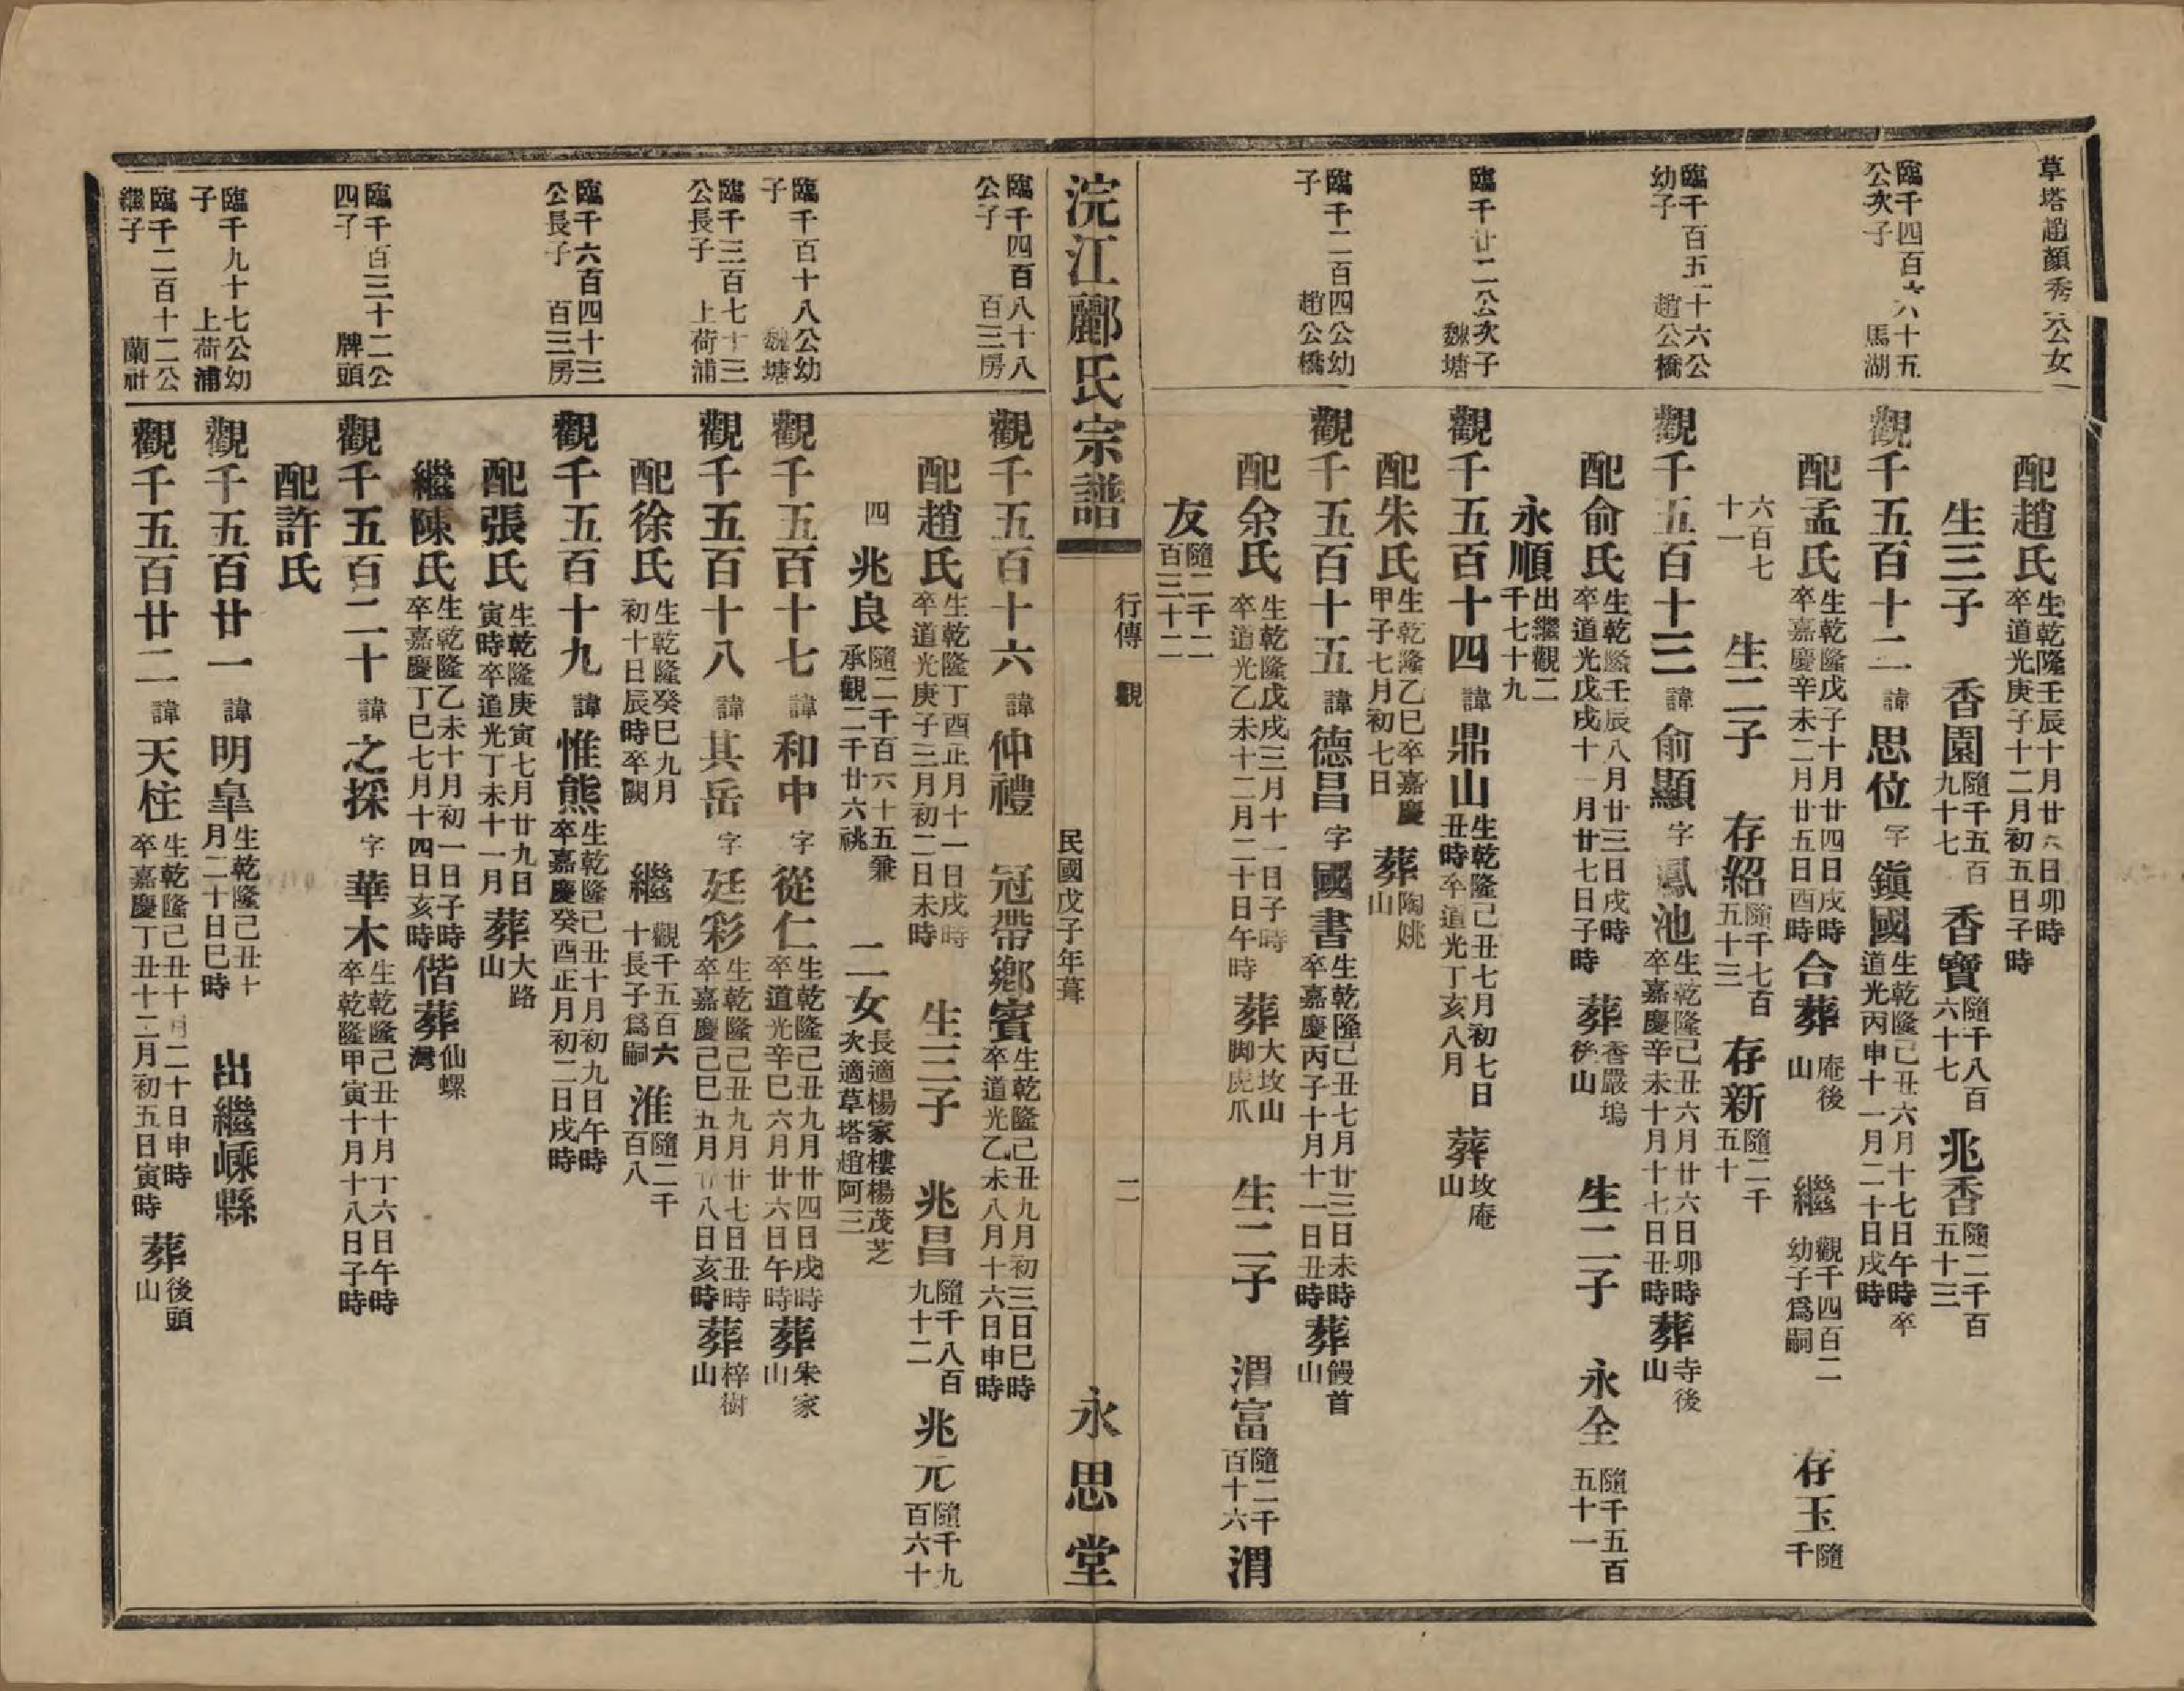 草塔趙顏秀公女
配趙氏生乾隆壬辰十月廿六日卯時卒道光庚子十二月初五日子時
生三子 香園隨千五百九十七 香寶隨千八百六十七 兆香隨二千百五十三
臨千四百六十五公次子 馬湖
觀千五百十二諱思位字鎭國生乾隆己丑六月十七日午時卒道光丙申十一月二十日戌時
配孟氏生乾隆戊子十月廿四日戌時卒嘉慶辛未二月廿五日酉時合葬庵後山 繼觀千四百二幼子爲嗣 存玉隨千
六百七十一 生二子 存紹隨千七百五十三 存新隨二千五十
臨千百五十六公幼子 趙公橋
觀千五百十三諱俞顯字鳳池生乾隆己丑六月廿六日卯時卒嘉慶辛未十月十七日丑時葬寺後山
配俞氏生乾隆壬辰八月廿三日戌時卒道光戊戌十一月廿七日子時 葬香嚴塢後山 生二子 永全隨千五百五十一
永順出繼觀二千七十九
臨千廿二公次子 魏塘
觀千五百十四諱鼎山生乾隆己丑七月初七日丑時卒道光丁亥八月 葬坟庵山
配朱氏生乾隆乙巳卒嘉慶甲子七月初七日 葬陶姚山
臨千二百四公幼子 趙公橋
觀千五百十五諱德昌字國書生乾隆己丑七月廿三日未時卒嘉慶丙子十月十一日丑時葬饅首山
配余氏生乾隆戊戌三月十一日子時卒道光乙未十二月二十日午時 葬大坟山脚虎爪 生二子 渭富隨二千百十六 渭
友隨二千二百三十二
浣江酈氏宗譜 行傳 觀 民國戊子年葺 二 永思堂
臨千四百八十八公子 百三房
觀千五百十六諱仲禮 冠帶鄉賓生乾隆己丑九月初三日巳時卒道光乙未八月十六日申時
配趙氏生乾隆丁酉正月十一日戌時卒道光庚子三月初二日未時 生三子 兆昌隨千八百九十二 兆元隨千九百六十
四 兆良隨二千百六十五兼承觀二千廿六祧 二女長適楊家樓楊茂芝次適草塔趙阿三
臨千百十八公幼子 魏塘
觀千五百十七諱和中字從仁生乾隆己丑九月廿四日戌時卒道光辛巳六月廿六日午時葬朱家山
臨千三百七十三公長子 上荷浦
觀千五百十八諱其岳字廷彩生乾隆己丑九月廿七日丑時卒嘉慶己巳五月廿八日亥時葬梓樹山
配徐氏生乾隆癸巳九月初十日辰時卒闕 繼觀千五百六十長子爲嗣 淮隨二千百八
臨千六百四十三公長子 百三房
觀千五百十九諱惟熊生乾隆己丑十月初九日午時卒嘉慶癸酉正月初二日戌時
配張氏生乾隆庚寅七月廿九日寅時卒道光丁未十一月葬大路山
繼陳氏生乾隆乙未十月初一日子時卒嘉慶丁巳七月十四日亥時偕葬仙螺灣
臨千百三十二公四子 牌頭
觀千五百二十諱之採字華木生乾隆己丑十月十六日午時卒乾隆甲寅十月十八日子時
配許氏
臨千九十七公幼子 上荷浦
觀千五百廿一諱明臯生乾隆己丑十月二十日巳時 出繼嵊縣
臨千二百十二公繼子 蘭社
觀千五百廿二諱天柱生乾隆己丑十月二十日申時卒嘉慶丁丑十二月初五日寅時 葬後頭山